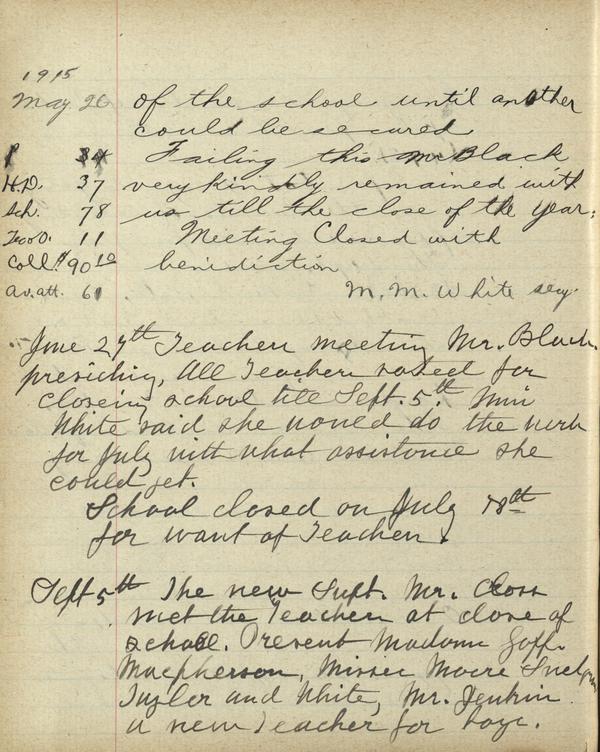 1915
May 20 of the school until another
could be secured
34 Failing this Mr Black
H.D. 37 very kindly remained with
Sch. 78 us till the close of the year.
11 Meeting Closed with
Coll. $90 10 benidiction
av. att. 61 M. M. White secy.
June 27th Teachers meeting Mr. Black
presiding. All Teachers voted for
closeing school till Sept. 5th. Miss
White said she would do the work
for July with what assistance she
could get.
School closed on July 18th
for want of Teachers.
Sept 5th The new Supt. Mr. Cross
met the Teachers at close of
school. Present Madams Goff.
Macpherson, Misses Moore
and White, Mr. Jenkin
a new Teacher for boys.